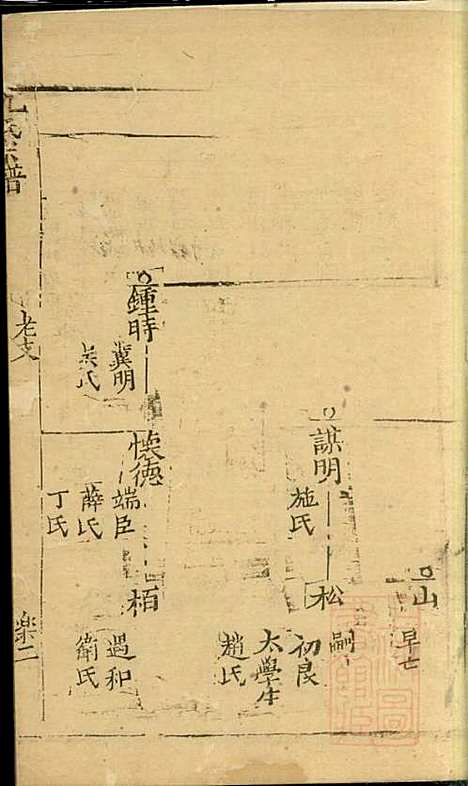 山
早亡
謀明
施氏
松
嗣
初良
太學生
趙氏
鍾時
冀明
吴氏
懷德
端臣
薛氏
丁氏
栢
遇和
衛氏
氏宗譜
老支
樂二